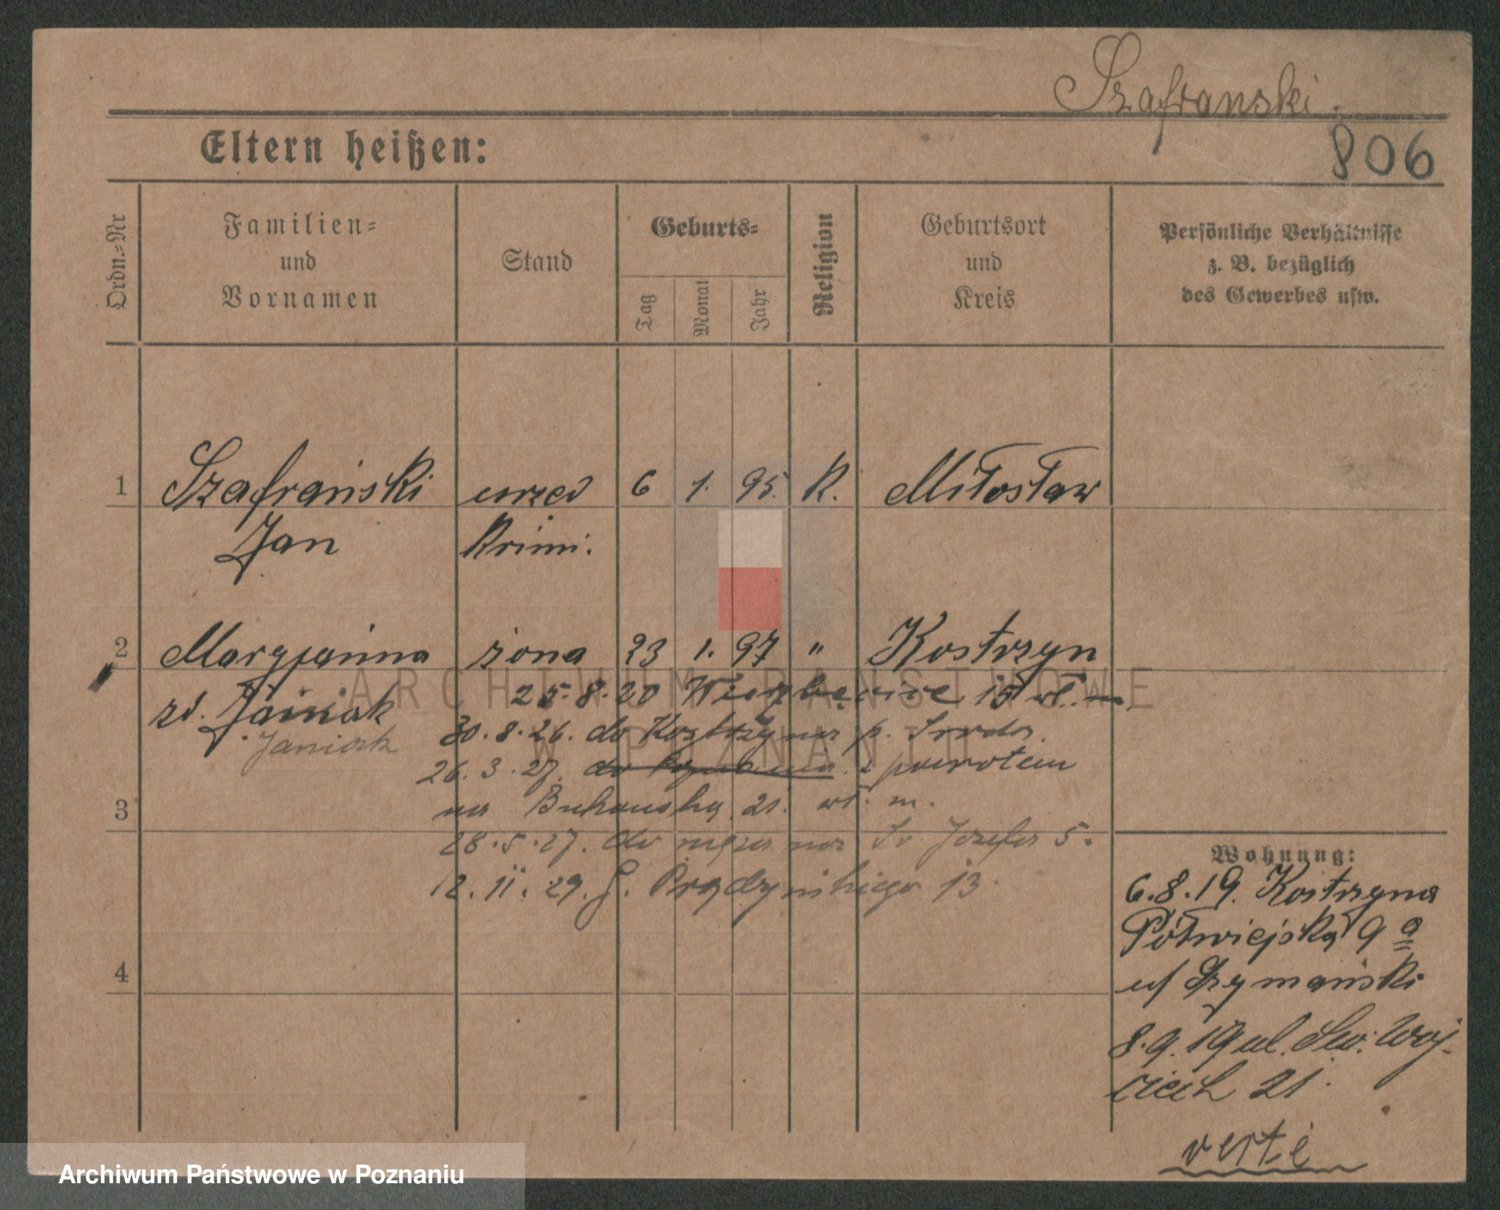 Szafranski.
806
Eltern heißen:
Ordn.-Nr
Familien- und Vornamen
Stand
Geburts-
Tag
Monat
Jahr
Religion
Geburtsort und Kreis
Persönliche Verhältnisse z. B. bezüglich des Gewerbes usw.
1 Szafrański urzed 6 1. 95. K. Miłosław
Jan Krimi.
2 Maryjanna żona 23 1. 97 " Kostrzyn
zd. Janiak 25.8.20 15
Janiak 30.8.26. do Kostrzyna p. Środa
26.3.27. do Poznania z powrotem
3 na Bukowską 21. wł. m.
28.5.27. do męża na Św Józefa 5.
12.11.29. G. Prądzyńskiego 13
4
Wohnung:
6.8.19. Kostrzyna
Półwiejska 9 a
u/ Szymański
8.9.19 ul. Św. Woj-
ciech 21.
verte
ARCHIWUM PAŃSTWOWE
W POZNANIU
Archiwum Państwowe w Poznaniu